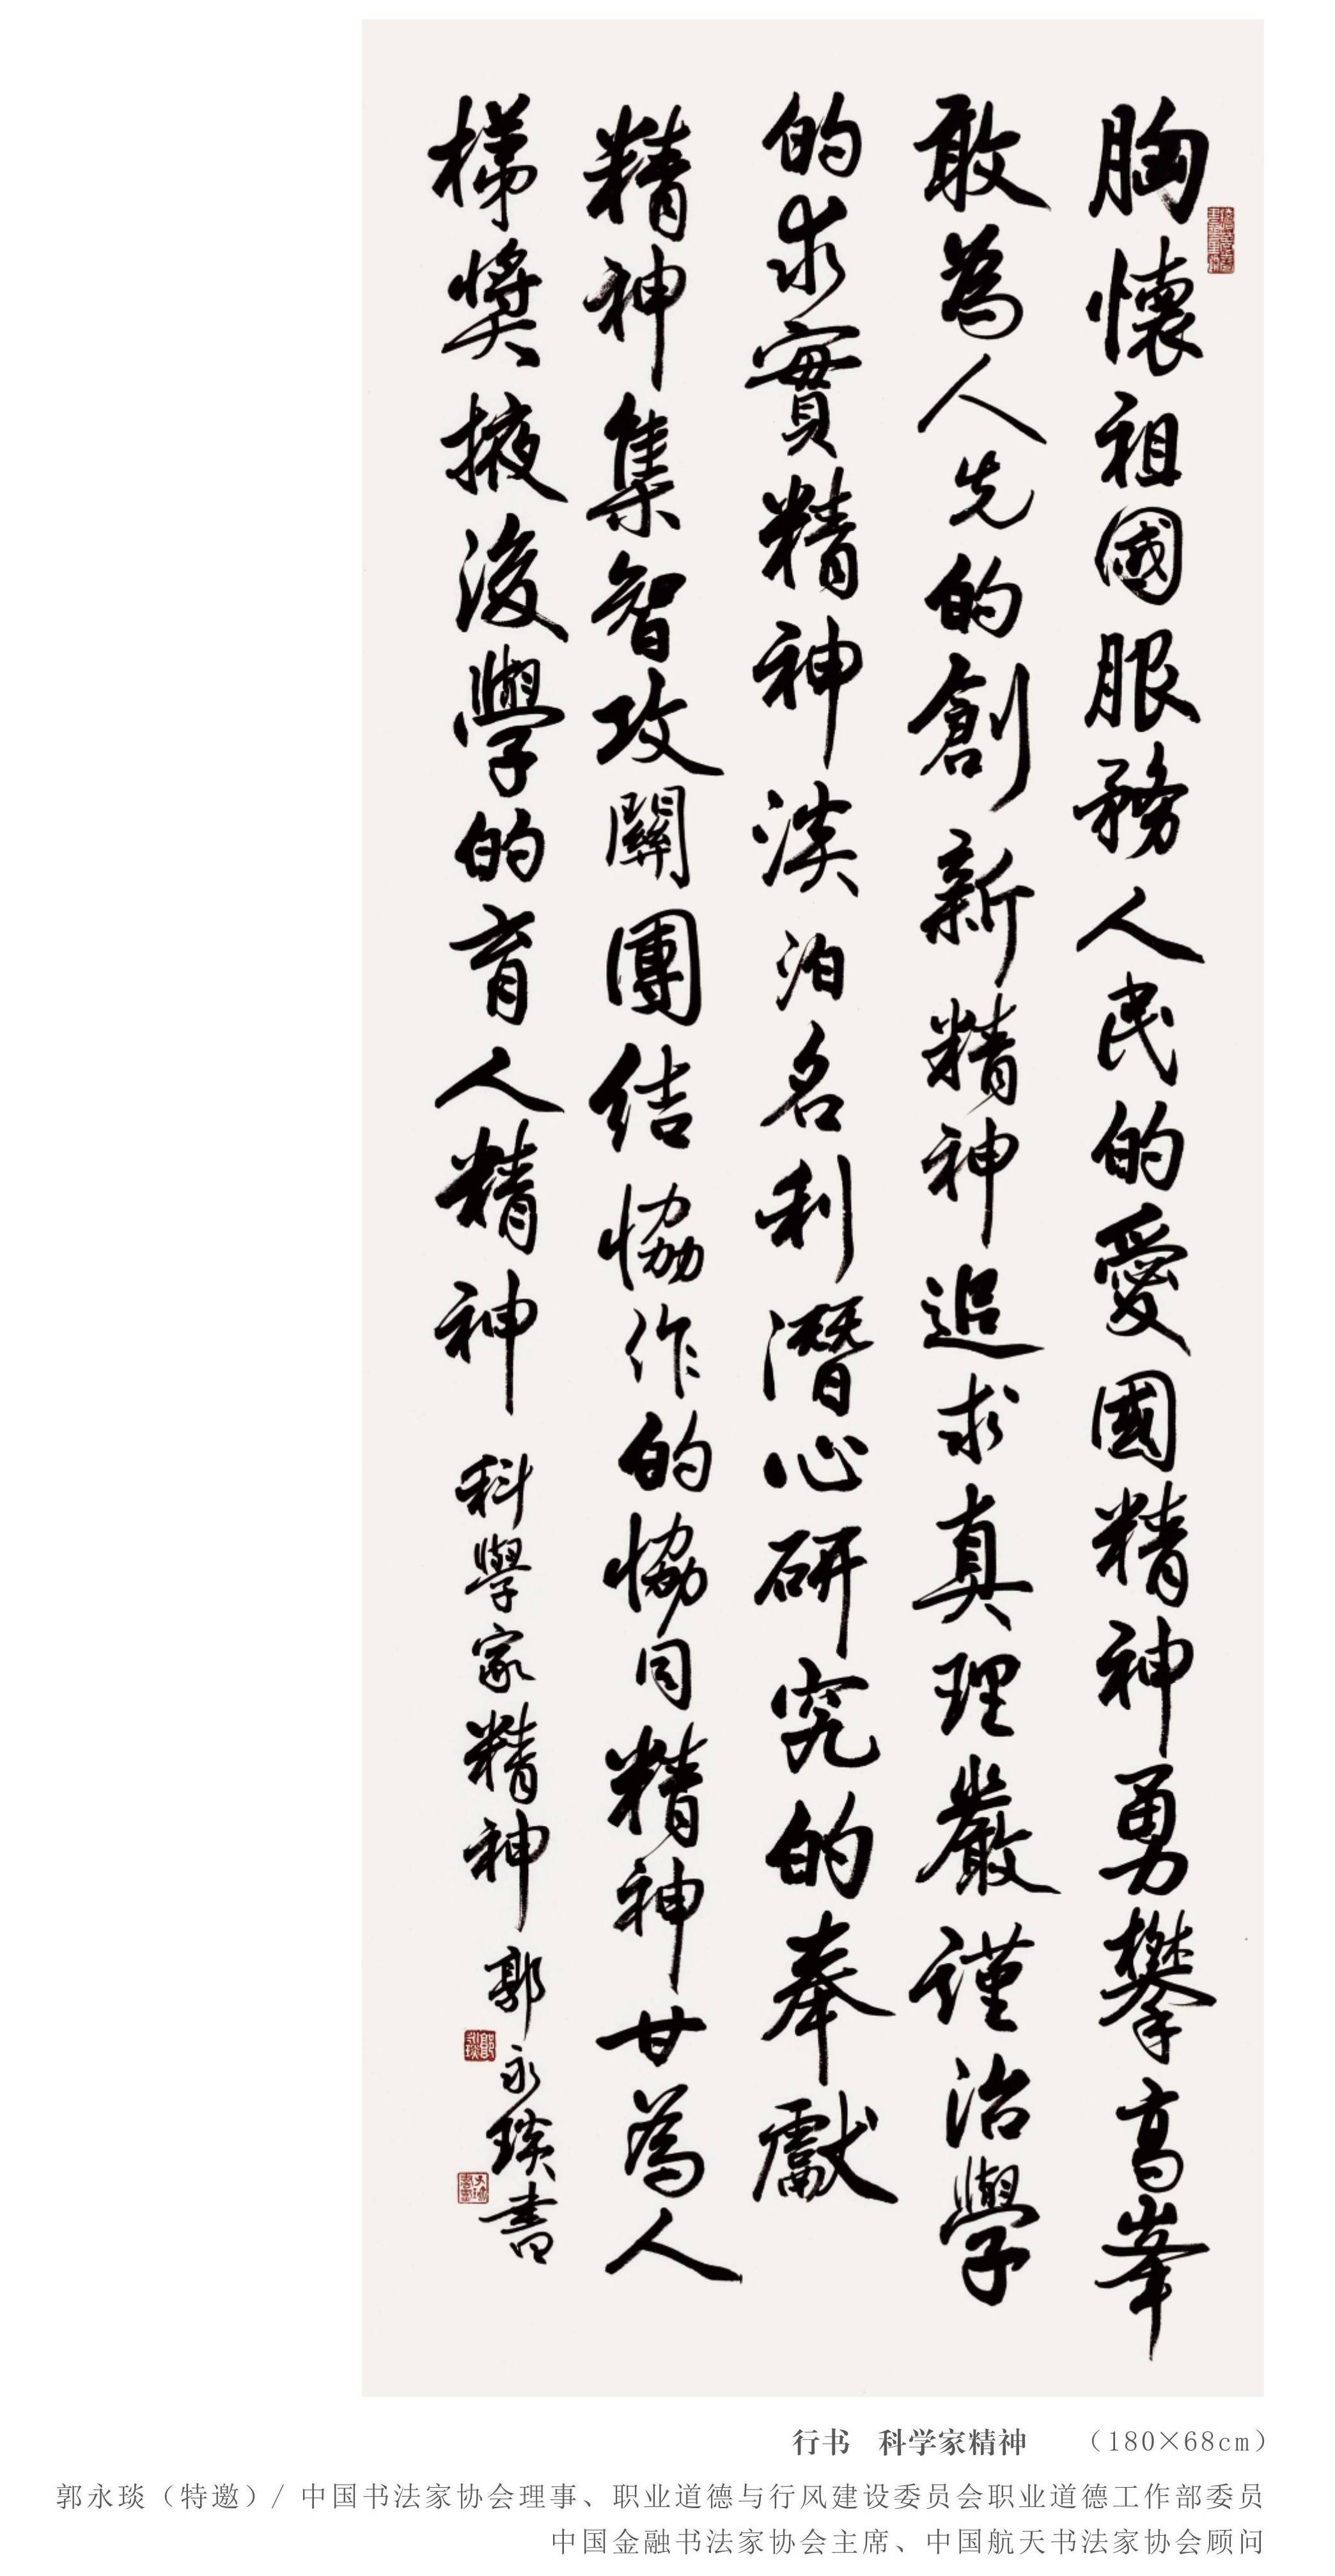 胸懷祖國服務人民的愛國精神勇攀高峯
敢為人先的創新精神追求真理嚴謹治學
的求實精神淡泊名利潛心研究的奉獻
精神集智攻關團结恊作的恊同精神甘為人
梯奬掖後學的育人精神 科學家精神 郭永琰書
郭永琰
行书 科学家精神 （180×68cm）
郭永琰（特邀）/ 中国书法家协会理事、职业道德与行风建设委员会职业道德工作部委员
中国金融书法家协会主席、中国航天书法家协会顾问